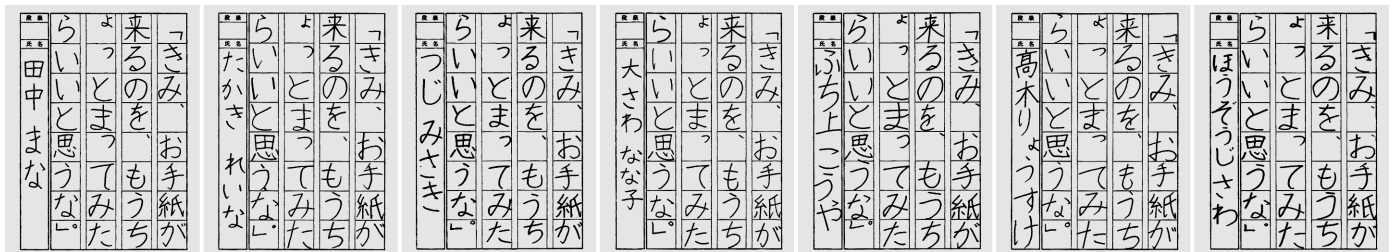 「きみ、お手紙が
来るのを、もうち
ょっとまってみた
らいいと思うな。」
段級
氏名
田中 まな
「きみ、お手紙が
来るのを、もうち
ょっとまってみた
らいいと思うな。」
段級
氏名
たかき れいな
「きみ、お手紙が
来るのを、もうち
ょっとまってみた
らいいと思うな。」
段級
氏名
つじ みさき
「きみ、お手紙が
来るのを、もうち
ょっとまってみた
らいいと思うな。」
段級
氏名
大さわ なな子
「きみ、お手紙が
来るのを、もうち
ょっとまってみた
らいいと思うな。」
段級
氏名
ふち上 こうや
「きみ、お手紙が
来るのを、もうち
ょっとまってみた
らいいと思うな。」
段級
氏名
髙木りょうすけ
「きみ、お手紙が
来るのを、もうち
ょっとまってみた
らいいと思うな。」
段級
氏名
ほうぞうじさわ